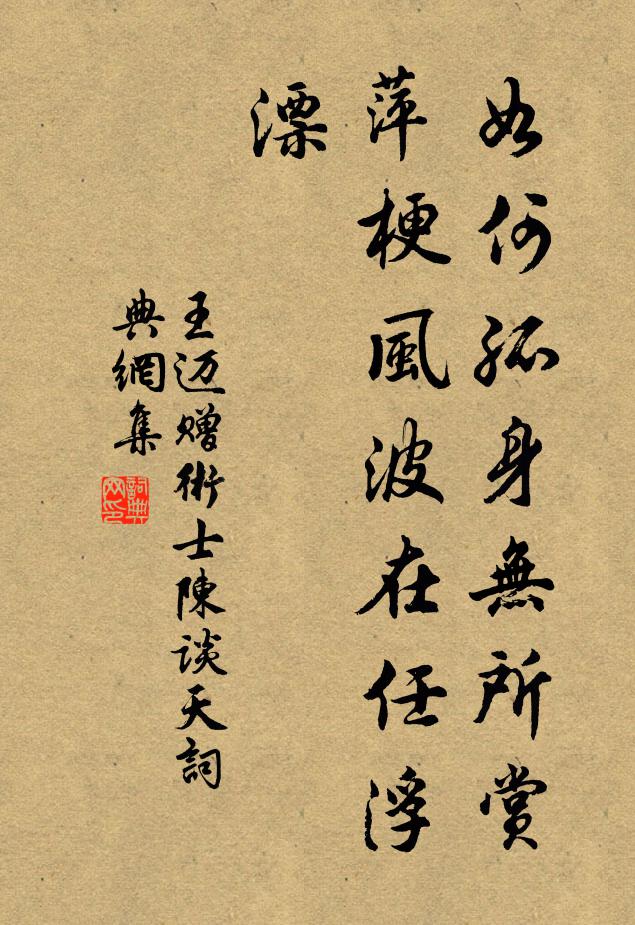 如何孤身無所賞
萍梗風波在任浮
漂
王迈赠術士陳谈天詞
典網集
詞典网印